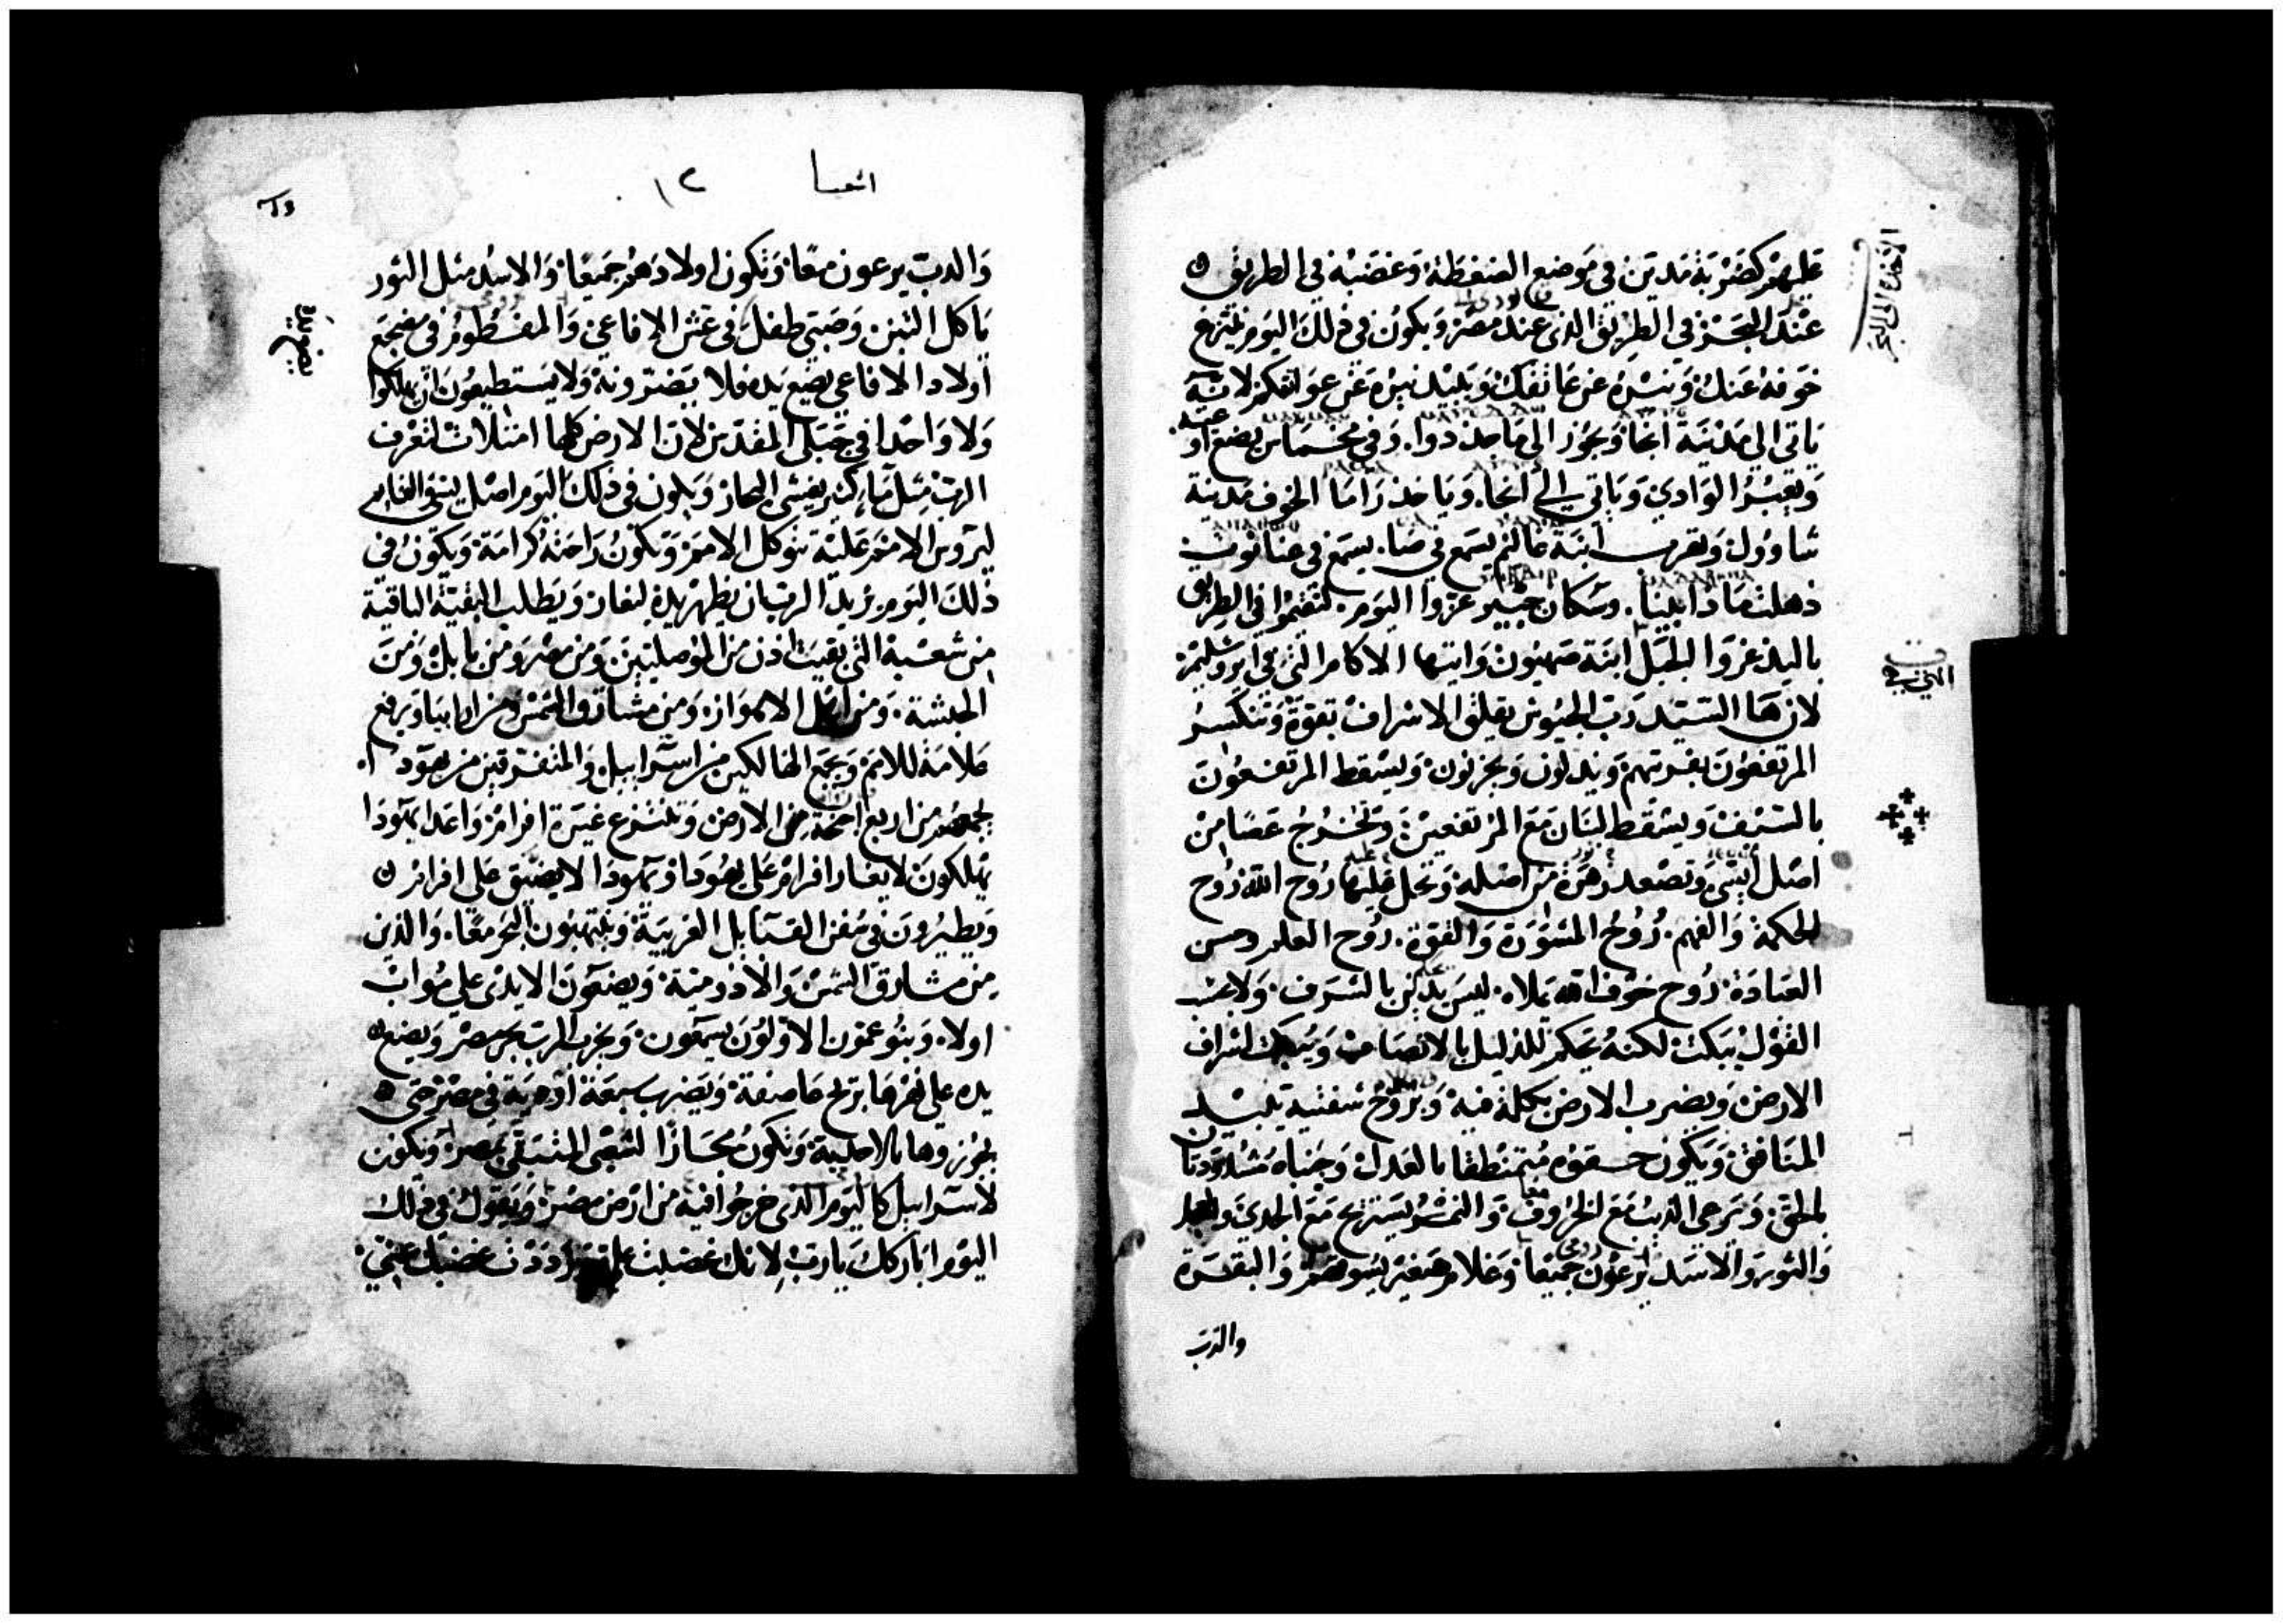 عليهم كضربة مدين في موضع الضغطة وغضبه في الطريق
عند البحر في الطريق الذي عند مصر ويكون في ذلك اليوم ينزع
خوفه عنك ونيره عن عاتقك ويبيد نيره عن عواتقكم لانه
ياتي الي مدينة انجا ويجوز الي ماجدوا. وفي مخماس يضع
ويعبر الوادي وياتي الي انجا. وياخذ راما الخوف مدينة
شاوول وتهرب ابنة غاليم يسمع في
وسكان جبير عزوا اليوم. لتقيموا في الطريق
باليد عزوا الجبل ابنة صهيون وايتها الاكام التي في ايروشليم
لان ها السيد رب الجيوش يقلق الاشراف بقوة وتنكسر
المرتفعون بقدرتهم ويذلون ويحزنون وليسقط المرتفعون
بالسيف ويسقط لبنان مع المرتفعين وتخرج عصا من
اصل ايسي وتصعد زهرة من اصله وتحل عليها روح الله روح
الحكمة والفهم. روح المشورة والقوة. روح العلم وحسن
العبادة روح خوف الله يملاه ليس يدين بالشرف ولا بحسب
القول يبكت لكنه يحكم للذليل بالانصاف ويبكت اشراف
الارض ويضرب الارض بكلمة فيه وبروح شفتيه يبيد
المنافق ويكون حقوه متمنطقا بالعدل وجنباه مشدودتان
بالحق ويرعي الذيب مع الخروف والنمر يستريح مع الجدي والعجل
والثور والاسد يرعون جميعا وغلام صغير يسوقهم والبقرة
والدب
اشعيا ١٢
والدب يرعون معا وتكون اولادهم جميعا والاسد مثل الثور
ياكل التبن وصبي طفل في عش الافاعي والمفطوم في مضجع
اولاد الافاعي يضع يده فلا يضرونه ولا يستطيعون ان يهلكوا
ولا واحدا في جبلي المقدس لان الارض كلها امتلات لتعرف
الرب مثل ما كثير يغشي البحار ويكون في ذلك اليوم اصل يسي القايم
ليروس الامم عليه تتوكل الامم وتكون راحته كرامة ويكون في
ذلك اليوم يزيد الرب ان يظهر يده ليغار ويطلب البقية الباقية
من شعبه التي بقيت اذن من الموصليين ومن مصر ومن بابل ومن
الحبشة ومن الاهواز ومن مشارق الشمس ومن ارابيا ويرفع
علامة للامم ويجمع الهالكين من اسراييل والمتفرقين من يهودا
يجمعهم من اربع اجنحة الارض وتنتزع غيرة افرام واعدا يهودا
يهلكون لا يغار افرام علي يهودا ويهودا لا يضيق علي افرام
ويطيرون في سفن القبايل الغريبة وينتهبون البحر معا. والذين
من مشارق الشمس والادومية ويضعون الايدي علي مواب
اولا وبنو عمون الاولون يسمعون ويخرب الرب بحر مصر ويضع
يده علي نهرها بريح عاصفة ويضرب سبعة اودية في مصر حتي
يجوزوها بالاحذية وتكون مجازا لشعبي المتبقي بمصر وتكون
لاسراييل كاليوم الذي خرجوا فيه من ارض مصر ويقول في ذلك
اليوم اباركك يارب لانك غضبت علي ورددت غضبك عني